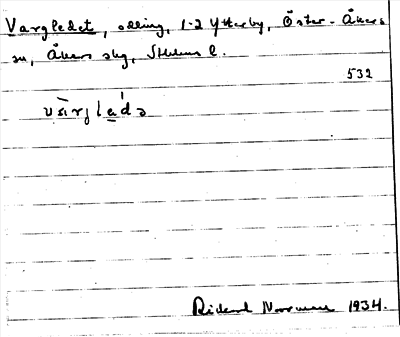 Vargledet, odling, 1-2 Ytterby, Öster-Åkers
sn, Åkers skg, Sthlms l.
532
varjleda
Rickard Norrman 1934.